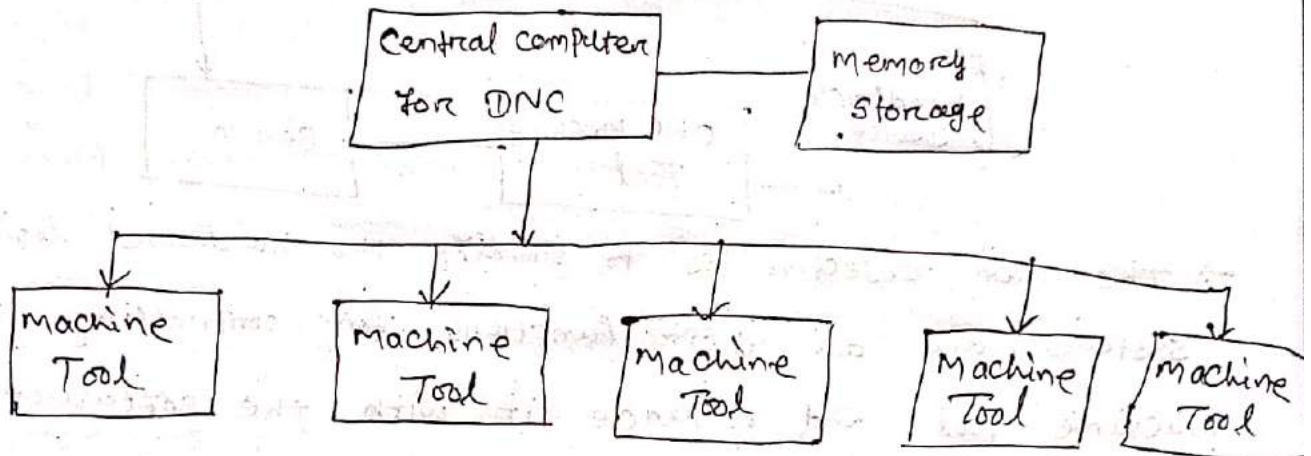 Central computer
for DNC
Memory
Storage
Machine
Tool
Machine
Tool
Machine
Tool
Machine
Tool
Machine
Tool